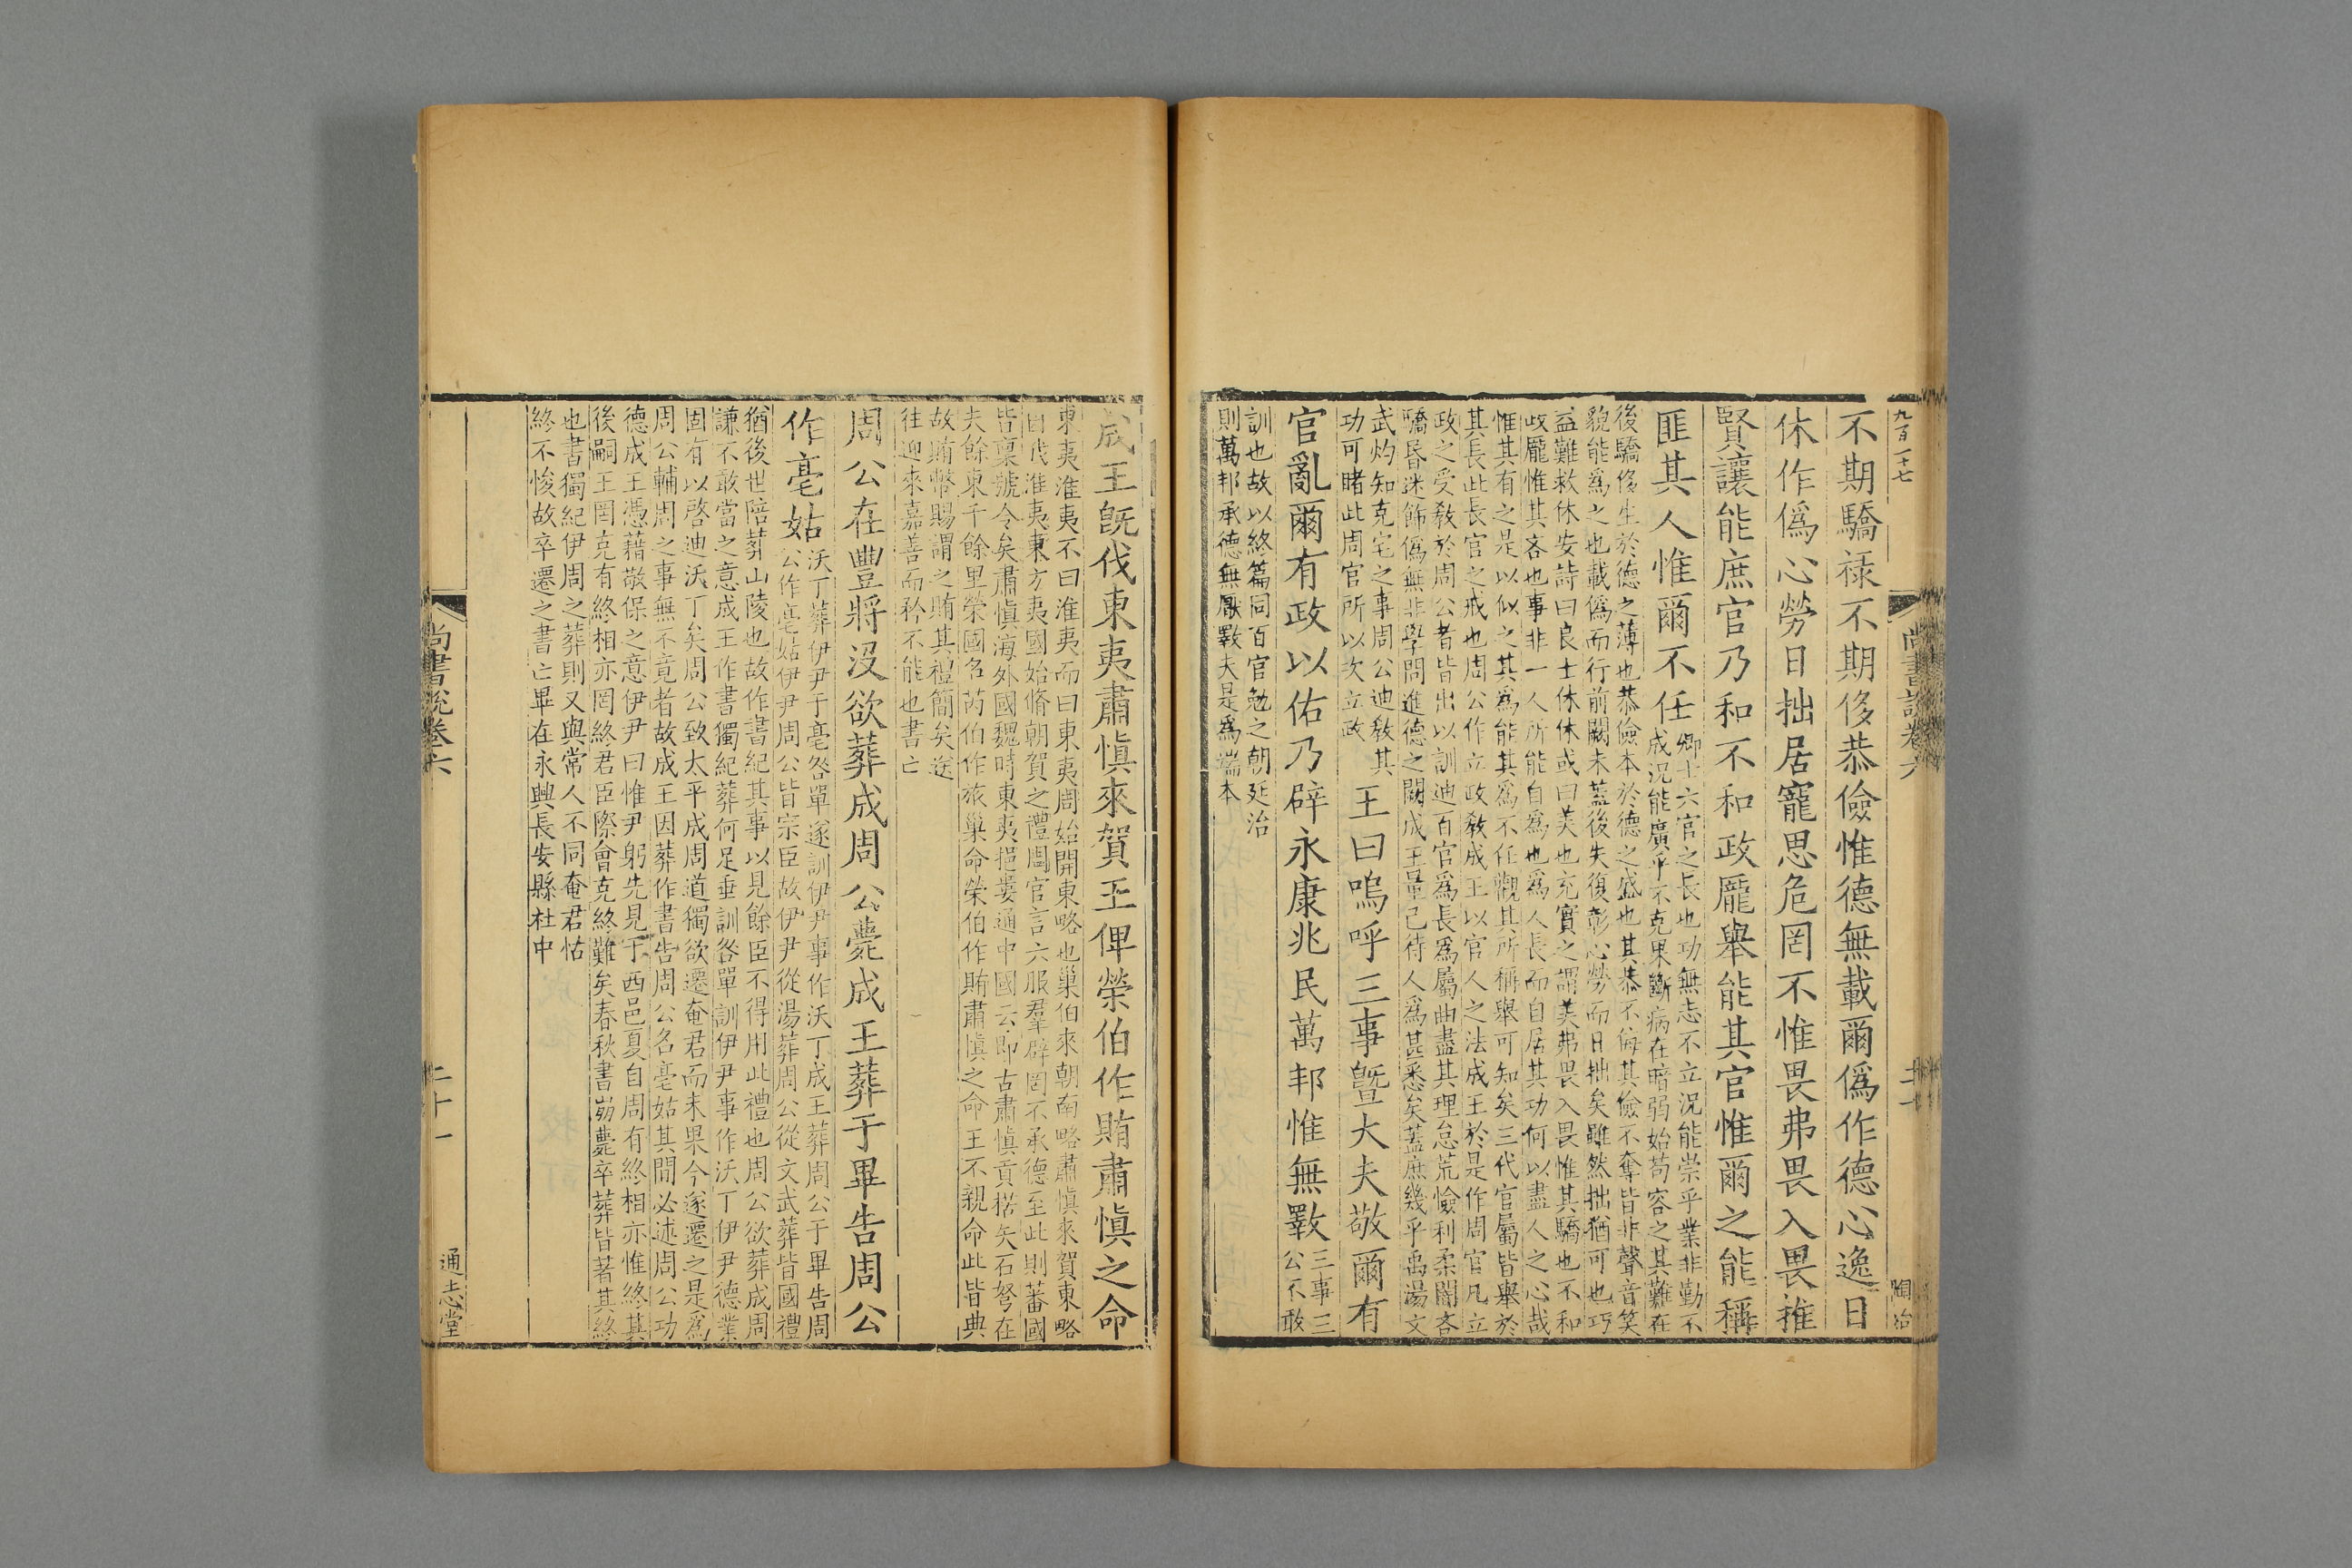 九百一十七
不期驕祿不期侈恭儉惟德無載爾偽作德心逸日
休作偽心勞日拙居寵思危罔不惟畏弗畏入畏推
賢讓能庶官乃和不和政厖舉能其官惟爾之能稱
匪其人惟爾不任
卿士六官之長也功無志不立況能崇乎業非勤不
成況能廣乎不克果斷病在暗弱始苟容之其難在
後驕侈生於德之薄也恭儉本於德之盛也其恭不侮其儉不奪皆非聲音笑
貌能為之也載偽而行前闕未蓋後失復彰心勞而日拙矣雖然拙猶可也巧
益難救休安詩曰良士休休或曰美也充實之謂美弗畏入畏惟其驕也不和
政厖惟其吝也事非一人所能自為也為人長而自居其功何以盡人之心哉
惟其有之是以似之其為能其為不任觀其所稱舉可知矣三代官屬皆舉於
其長此長官之戒也周公作立政教成王以官人之法成王於是作周官凡立
政之受教於周公者皆出以訓迪百官為長為屬曲盡其理怠荒憸利柔闇吝
驕昏迷飾偽無非學問進德之闕成王量己待人為甚悉矣蓋庶幾乎禹湯文
武灼知克宅之事周公迪教其
功可睹此周官所以次立政
王曰嗚呼三事曁大夫敬爾有
官亂爾有政以佑乃辟永康兆民萬邦惟無斁
三事三
公不敢
訓也故以終篇同百官勉之朝廷治
則萬邦承德無厭斁夫是為端本
尚書說卷六
二十一
成王旣伐東夷肅愼來賀王俾榮伯作賄肅愼之命
東夷淮夷不曰淮夷而曰東夷周始開東略也巢伯來朝南略肅愼來賀東略
自伐淮夷東方夷國始脩朝賀之禮周官言六服羣辟罔不承德至此則蕃國
皆稟號令矣肅愼海外國魏時東夷挹婁通中國云即古肅愼貢楛矢石弩在
夫餘東千餘里榮國名芮伯作旅巢命榮伯作賄肅愼之命王不親命此皆典
故賄幣賜謂之賄其禮簡矣送
往迎來嘉善而矜不能也書亡
周公在豐將沒欲葬成周公薨成王葬于畢告周公
作亳姑
沃丁葬伊尹于亳咎單遂訓伊尹事作沃丁成王葬周公于畢告周
公作亳姑伊尹周公皆宗臣故伊尹從湯葬周公從文武葬皆國禮
猶後世陪葬山陵也故作書紀其事以見餘臣不得用此禮也周公欲葬成周
謙不敢當之意成王作書獨紀葬何足垂訓咎單訓伊尹事作沃丁伊尹德業
固有以啓迪沃丁矣周公致太平成周道獨欲遷奄君而未果今遂遷之是為
周公輔周之事無不竟者故成王因葬作書告周公名亳姑其間必述周公功
德成王憑藉敬保之意伊尹曰惟尹躬先見于西邑夏自周有終相亦惟終其
後嗣王罔克有終相亦罔終君臣際會克終難矣春秋書崩薨卒葬皆著其終
也書獨紀伊周之葬則又與常人不同奄君怙
終不悛故卒遷之書亡畢在永興長安縣杜中
尚書說卷六
二十一
通志堂